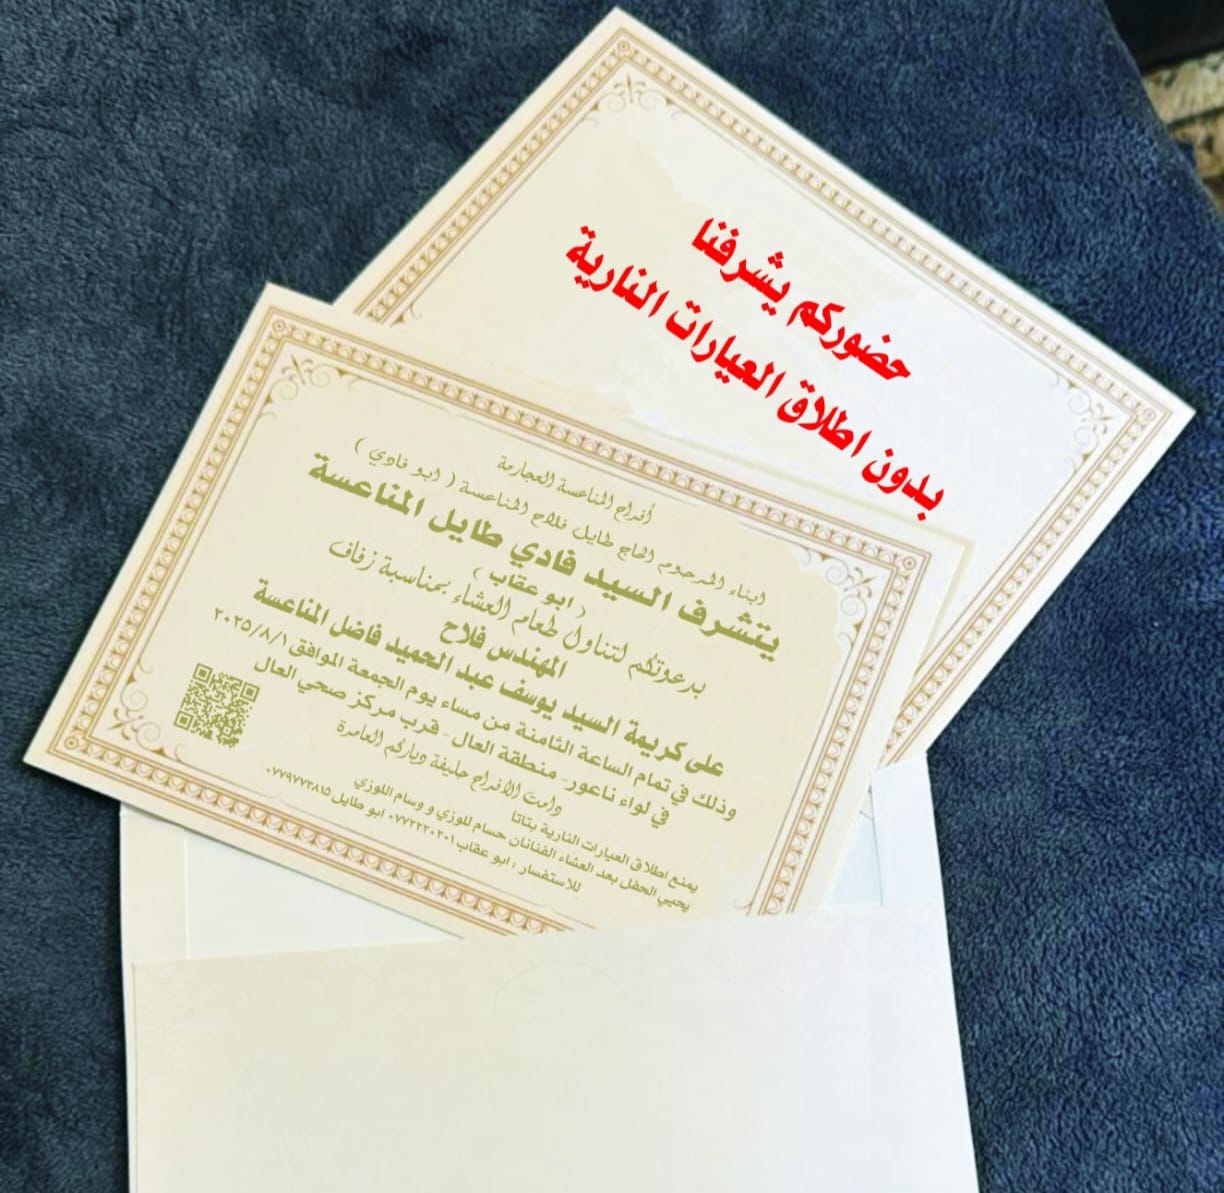 حضوركم يشرفنا
بدون اطلاق العيارات النارية
أفراح المناعسة العجارمة
ابناء المرحوم الحاج طايل فلاح المناعسة ( ابو فادي )
يتشرف السيد فادي طايل المناعسة
( ابو عقاب )
بدعوتكم لتناول طعام العشاء بمناسبة زفاف
المهندس فلاح
على كريمة السيد يوسف عبد الحميد فاضل المناعسة
وذلك في تمام الساعة الثامنة من مساء يوم الجمعة الموافق ٢٠٢٥/٨/١
في لواء ناعور - منطقة العال - قرب مركز صحي العال
دامت الافراح حليفة دياركم العامرة
يمنع اطلاق العيارات النارية بتاتا
يحيي الحفل بعد العشاء الفنانان حسام اللوزي و وسام اللوزي
للاستفسار : ابو عقاب ٠٧٧٢٢٢٠٢٠١ ابو طايل ٠٧٧٩٧٧٣٨١٥